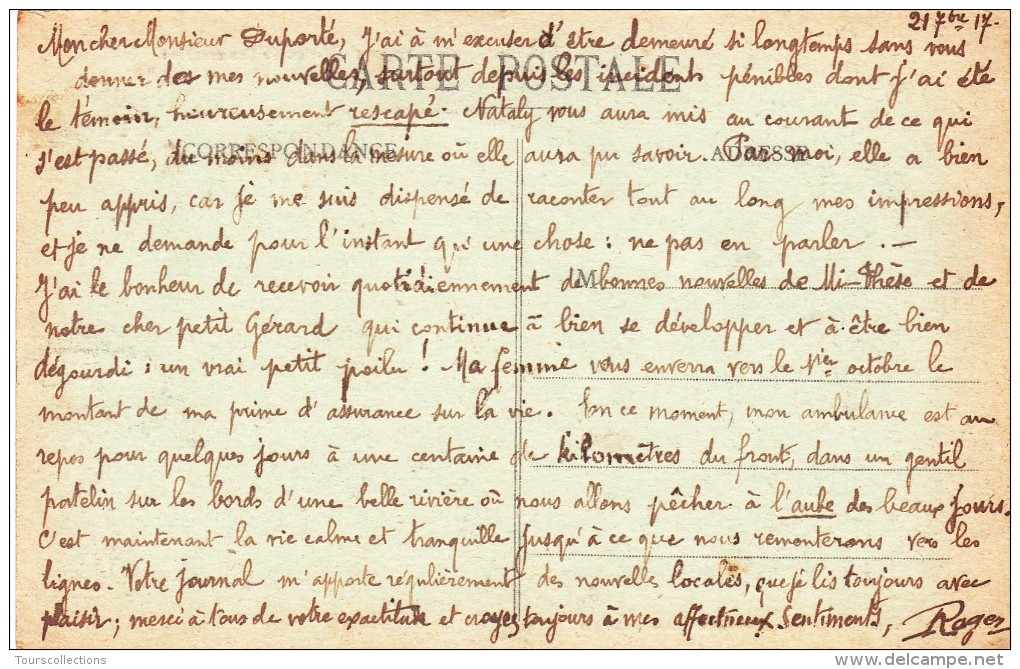 21 7bre 17.
Mon cher Monsieur Duporté, J'ai à m'excuser d'être demeuré si longtemps sans vous
donner des mes nouvelles, surtout depuis les incidents pénibles dont j'ai été
CARTE POSTALE
le témoin, heureusement rescapé. Nataly vous aura mis au courant de ce qui
s'est passé, du moins dans la mesure où elle aura pu savoir. Par moi, elle a bien
CORRESPONDANCE
ADRESSE
peu appris, car je me suis dispensé de raconter tout au long mes impressions,
et je ne demande pour l'instant qu'une chose : ne pas en parler . —
J'ai le bonheur de recevoir quotidiennement de bonnes nouvelles de Mi-Thèse et de
M
notre cher petit Gérard qui continue à bien se développer et à être bien
dégourdi : un vrai petit poilu ! Ma femme vous enverra vers le 1er octobre le
montant de ma prime d'assurance sur la vie. En ce moment, mon ambulance est au
repos pour quelques jours à une centaine de kilomètres du front, dans un gentil
patelin sur les bords d'une belle rivière où nous allons pêcher à l'aube des beaux jours.
C'est maintenant la vie calme et tranquille jusqu'à ce que nous remonterons vers les
lignes. Votre journal m'apporte régulièrement des nouvelles locales, que je lis toujours avec
plaisir ; merci à tous de votre exactitude et croyez toujours à mes affectueux sentiments, Roger
Tourscollections